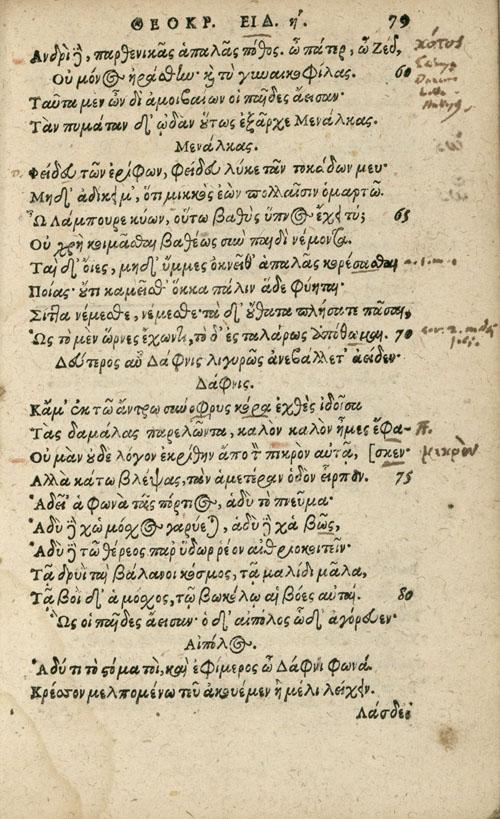 ΘΕΟΚΡ. ΕΙΔ. ή. 79
Ανδρὶ ἢ, παρθενικᾶς ἁπαλᾶς πόθος. ὦ πάτερ, ὦ Ζεῦ,
Οὐ μόνος ἠράσθίω· κὴ τὺ γυναικοφίλας. 60
Ταῦτα μεν ὦν δι ἀμοιβαίων οἱ παῖδες ἄεισαν·
Τὰν πυμάταν δ' ᾠδὰν οὕτως ἐξᾶρχε Μενάλκας.
Μενάλκας.
Φείδου τῶν ἐρίφων, φείδου λύκε τᾶν τοκάδων μευ·
Μηδ' ἀδίκει μ', ὅτι μικκὸς ἐὼν πολλαῖσιν ὁμαρτῶ.
Ὦ Λάμπουρε κύων, οὕτω βαθὺς ὕπνος ἔχει τύ; 65
Οὐ χρὴ κοιμᾶσθαι βαθέως σὺν παιδὶ νέμοντα.
Ταὶ δ' ὄϊες, μηδ' ὔμμες ὀκνεῖθ' ἁπαλᾶς κορέσασθαι
Ποίας· οὔτι καμεῖσθ' ὅκκα πάλιν ἅδε φύηται·
Σίττα νέμεσθε, νέμεσθε τὰ δ' οὔθατα πλήσατε πᾶσαι,
Ὡς τὸ μὲν ὥρνες ἔχωντι, τὸ δ' ἐς ταλάρως ἀπόθωμαι. 70
Δεύτερος αὖ Δάφνις λιγυρῶς ἀνεβάλλετ' ἀείδεν·
ΔΑΦΝΙΣ.
Κἄμ' ἐκ τῶ ἄντρω σύνοφρυς κόρα ἐχθὲς ἰδοῖσα
Τὰς δαμάλας παρελῶντα, καλὸν καλὸν ἦμες ἔφα-
Οὐ μὰν οὐδὲ λόγον ἐκρίθην ἄπο τὸν πικρὸν αὐτᾷ, [σκεν·
Αλλὰ κάτω βλέψας, τὰν ἁμετέραν ὁδὸν εἷρπον. 75
Ἁδεῖ' ἁ φωνὰ τᾶς πόρτιος, ἁδὺ τὸ πνεῦμα·
Ἁδὺ ἢ χὠ μόσχος γαρύεται, ἁδὺ ἢ χἁ βῶς,
Ἁδὺ ἢ τῶ θέρεος παρ' ὕδωρ ῥέον αἰθριοκοιτεῖν·
Τᾷ δρυῒ ταὶ βάλανοι κόσμος, τᾷ μαλίδι μᾶλα,
Τᾷ βοῒ δ' ἁ μόσχος, τῷ βωκόλω αἱ βόες αὐταί. 80
Ὣς οἱ παῖδες ἄεισαν· ὁ δ' αἰπόλος ὧδ' ἀγόρευεν·
Αἰπόλος.
Ἁδύ τι τὸ στόμα τοὶ, καὶ ἐφίμερος ὦ Δάφνι φωνά.
Κρέσσον μελπομένω τεῦ ἀκουέμεν ἢ μέλι λείχειν.
Λάσδεο
πικρὸν